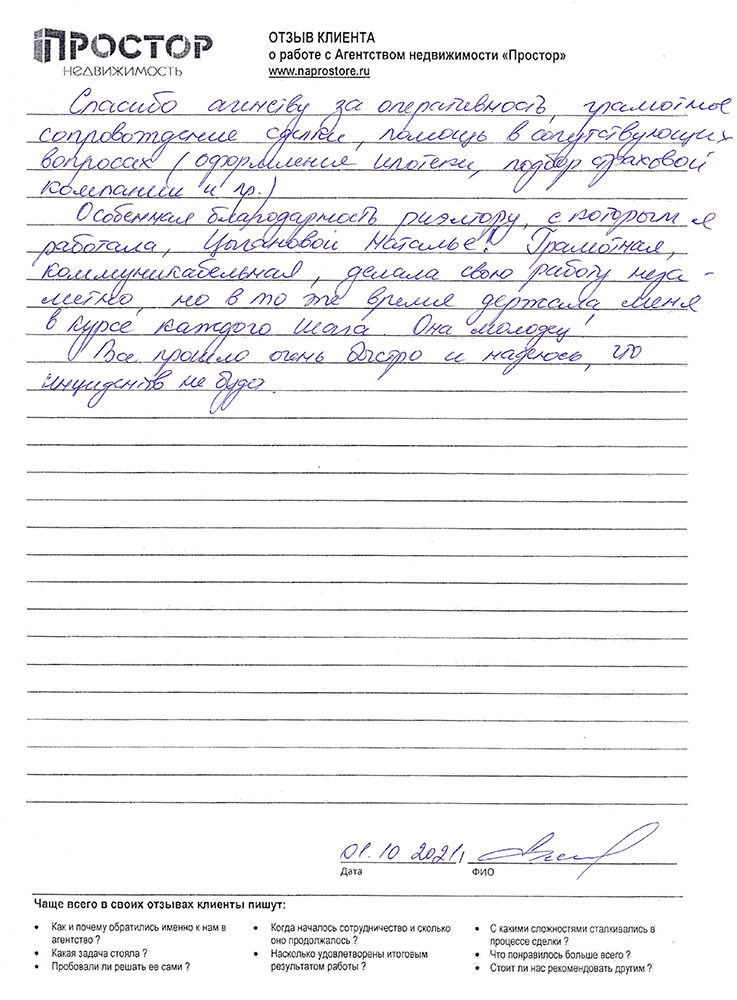 ПРОСТОР
НЕДВИЖИМОСТЬ
ОТЗЫВ КЛИЕНТА
о работе с Агентством недвижимости «Простор»
www.naprostore.ru
Спасибо агенству за оперативность, грамотное
сопровождение сделки, помощь в сопутствующих
вопросах (оформление ипотеки, подбор страховой
компании и пр.)
Особенная благодарность риэлтору, с которым я
работала, Цыгановой Наталье! Грамотная,
коммуникабельная, делала свою работу неза-
метно, но в то же время держала меня
в курсе каждого шага. Она молодец!
Все прошло очень быстро и надеюсь, что
инцидентов не будет.
01.10 2021г
Дата
ФИО
Чаще всего в своих отзывах клиенты пишут:
• Как и почему обратились именно к нам в
агентство ?
• Какая задача стояла ?
• Пробовали ли решать ее сами ?
• Когда началось сотрудничество и сколько
оно продолжалось ?
• Насколько удовлетворены итоговым
результатом работы ?
• С какими сложностями сталкивались в
процессе сделки ?
• Что понравилось больше всего ?
• Стоит ли нас рекомендовать другим ?